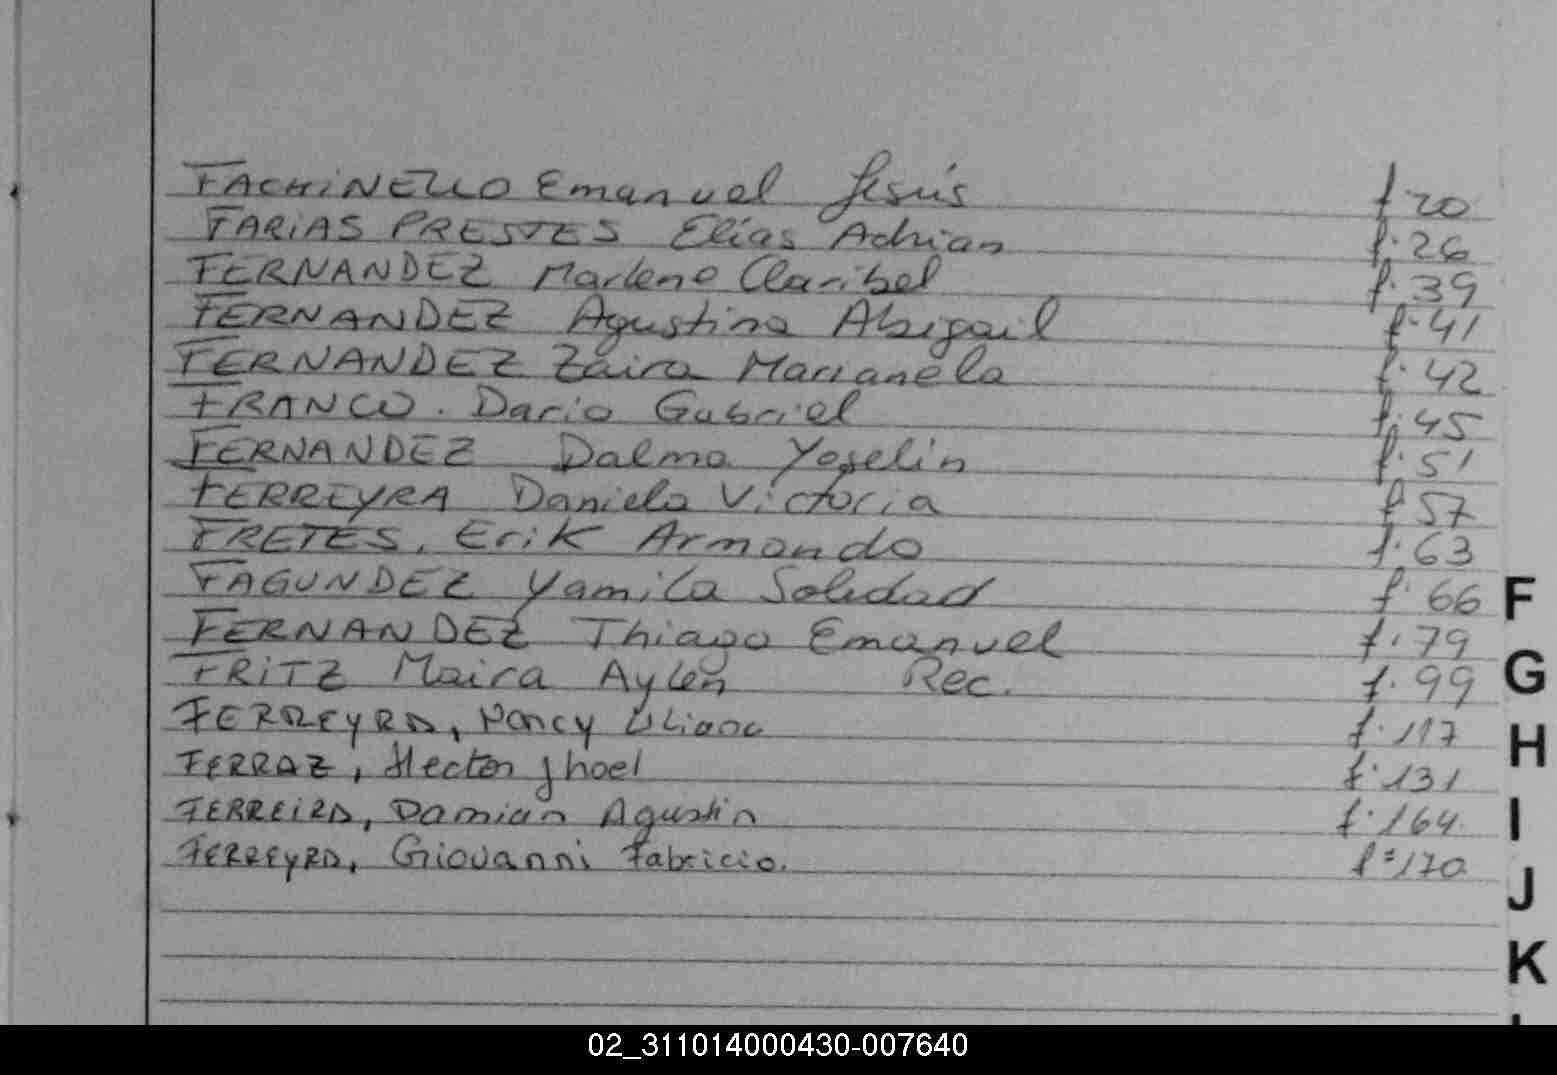 FACHINELLO Emanuel Jesús f. 20
FARIAS PRESTES Elías Adrian f. 26
FERNANDEZ Marlene Claribel f. 39
FERNANDEZ Agustina Abigail f. 41
FERNANDEZ Zaira Marianela f. 42
FRANCO. Dario Gabriel f. 45
FERNANDEZ Dalma Yoselin f. 51
FERREYRA Daniela Victoria f 57
FRETES, Erik Armando f. 63
FAGUNDEZ Yamila Soledad f. 66
F
FERNANDEZ Thiago Emanuel f. 79
FRITZ Maira Aylén Rec. f. 99
G
FERREYRA, Nancy Liliana f. 117
H
FERRAZ, Hector Jhoel f. 131
FERREIRA, Damian Agustin f. 164.
I
FERREYRA, Giovanni Fabricio. f = 170
J
K
02_311014000430-007640